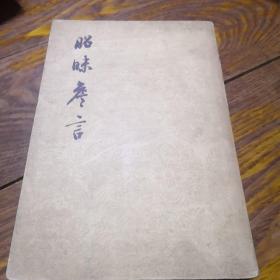 昭昧詹言